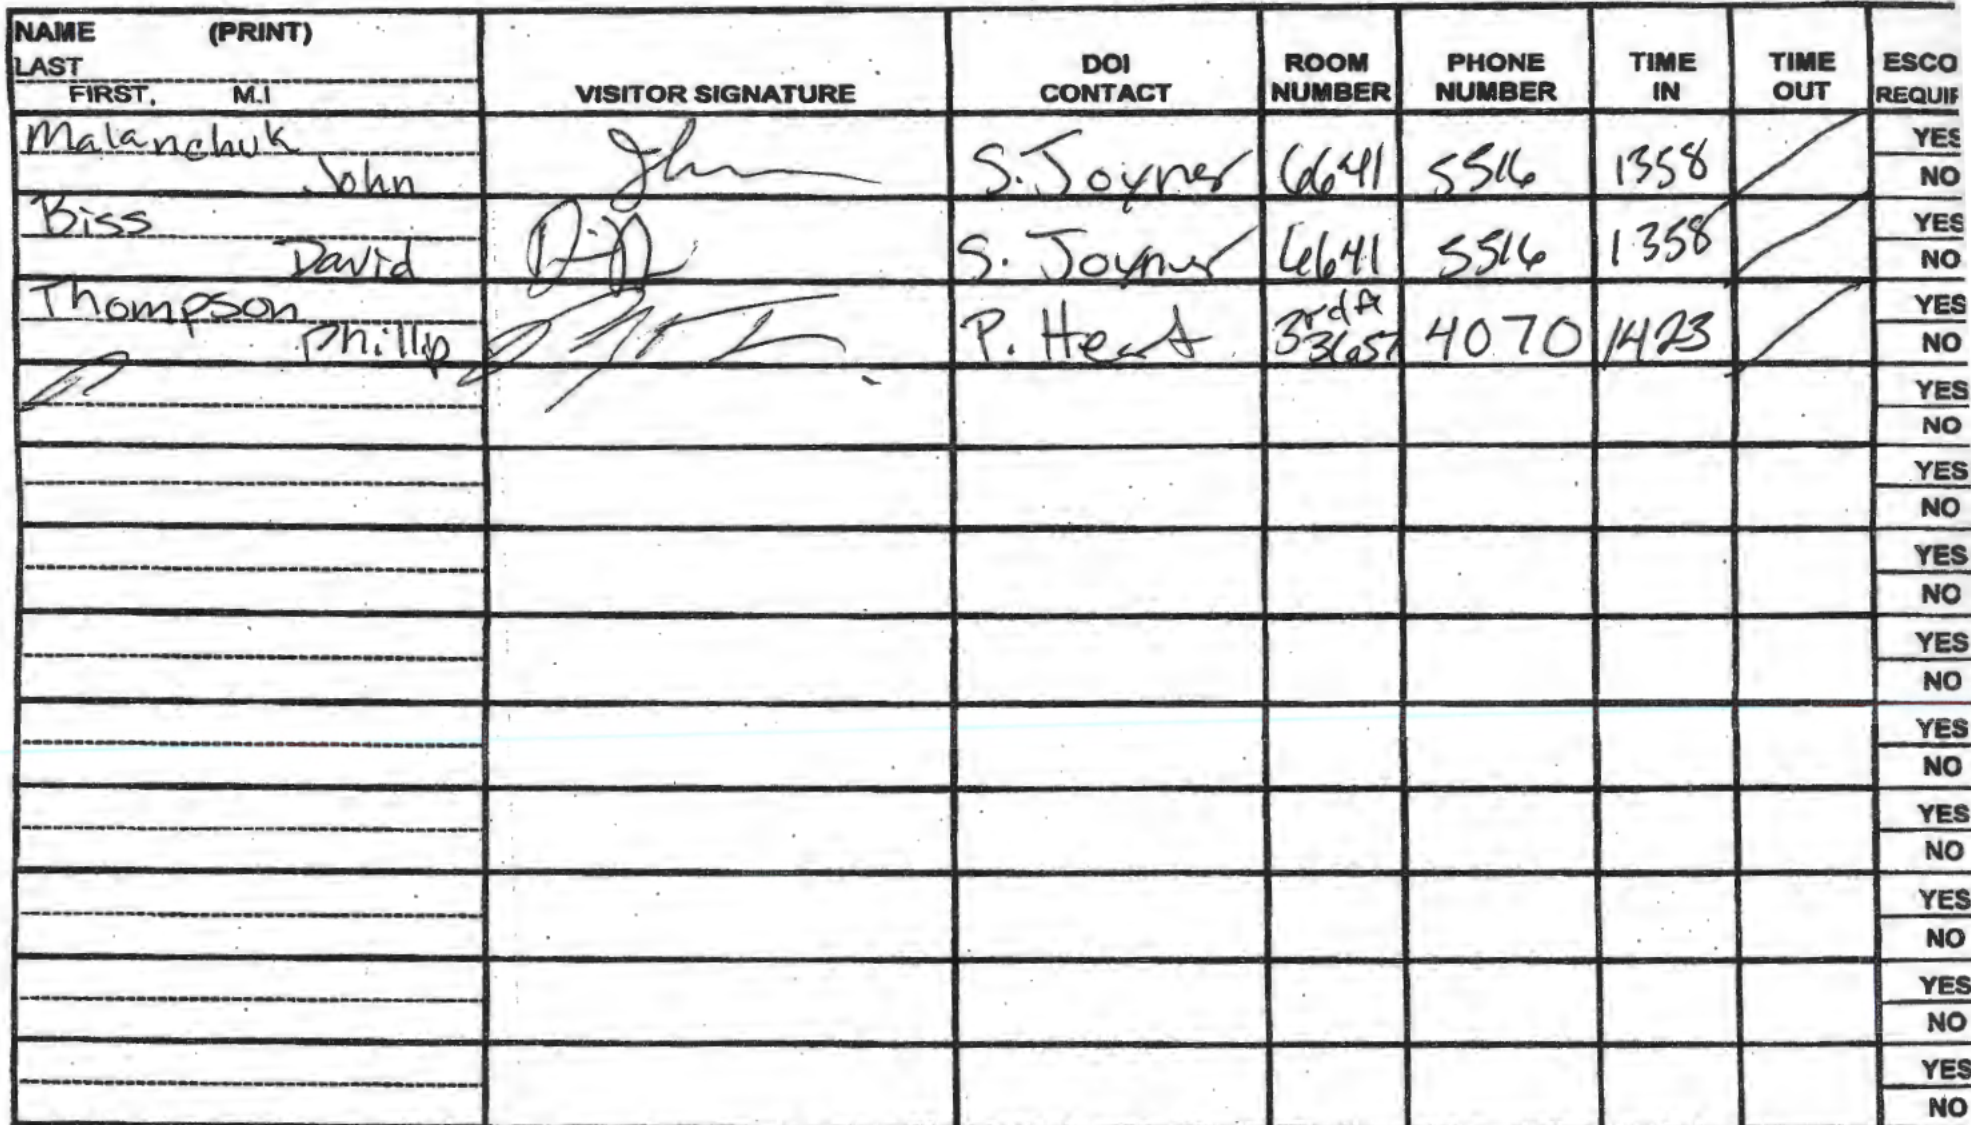 NAME (PRINT)
LAST
FIRST, M.I
VISITOR SIGNATURE
DOI CONTACT
ROOM NUMBER
PHONE NUMBER
TIME IN
TIME OUT
ESCO
REQUIF
Malanchuk
John
S. Joyner 6641 5516 1358
YES
NO
Biss
David
S. Joyner 6641 5516 1358
YES
NO
Thompson
Phillip
P. 3rd 4070 1423
YES
NO
YES
NO
YES
NO
YES
NO
YES
NO
YES
NO
YES
NO
YES
NO
YES
NO
YES
NO